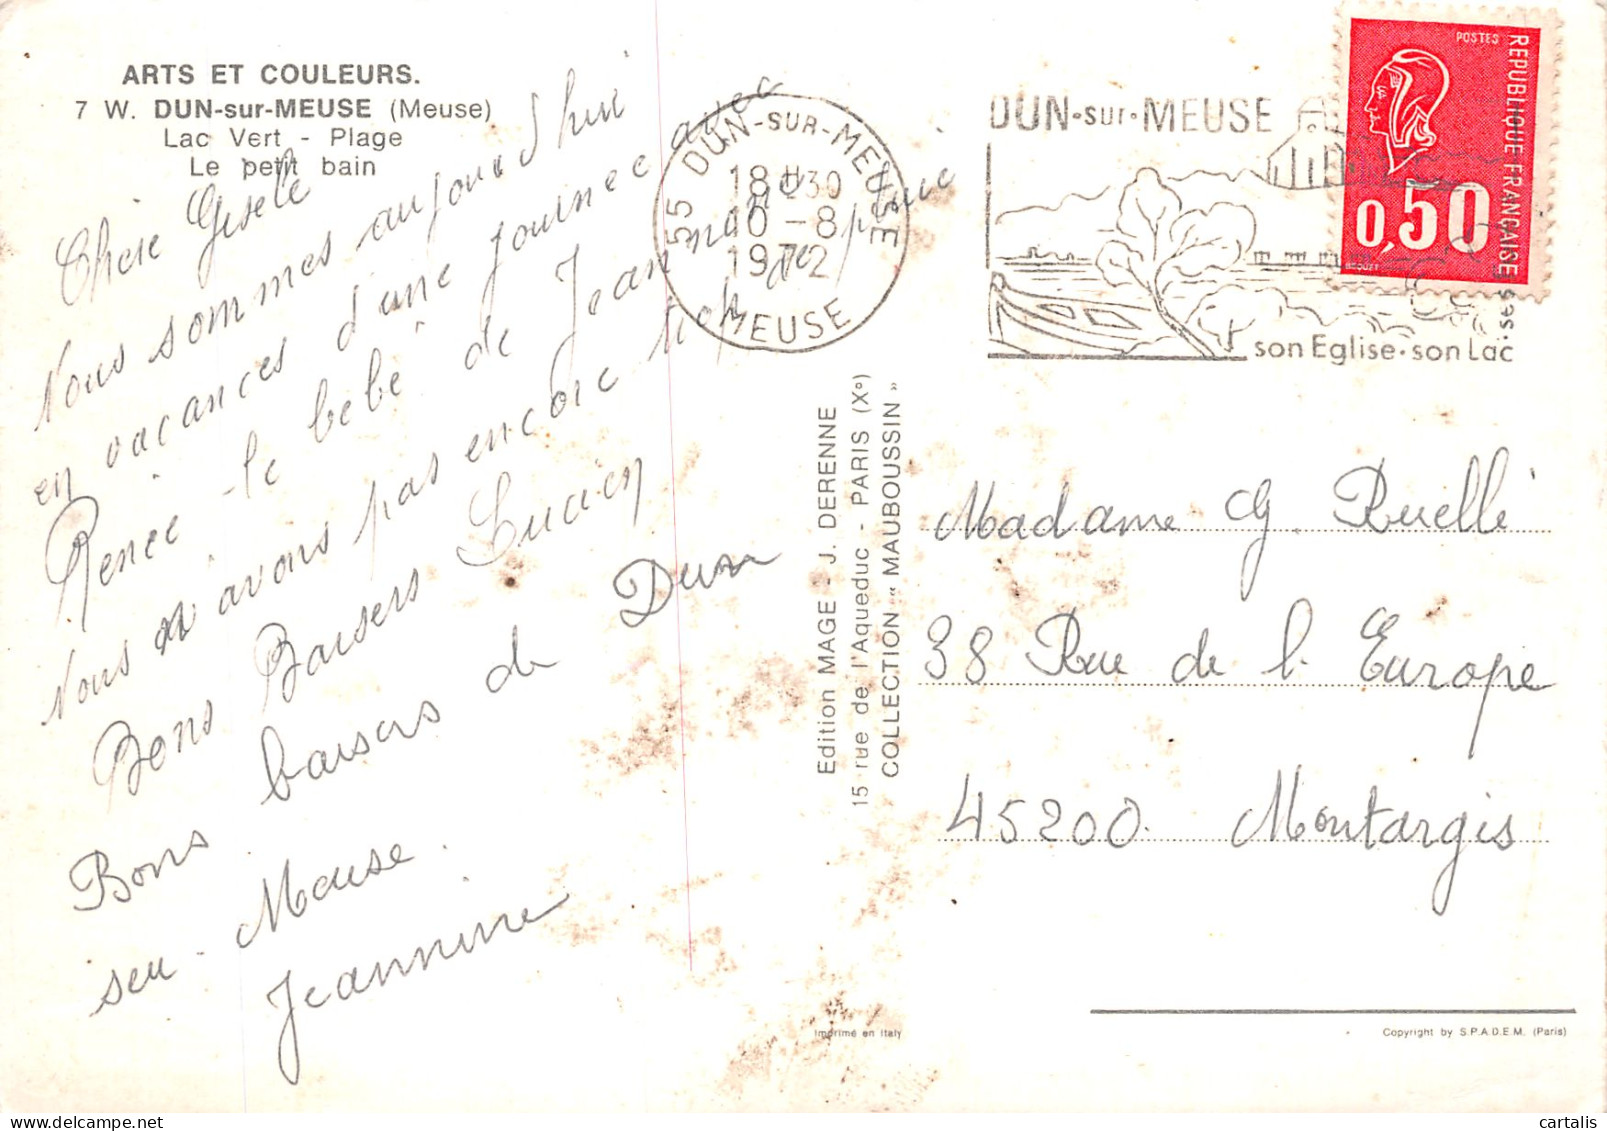 ARTS ET COULEURS.
7 W. DUN-sur-MEUSE (Meuse)
Lac Vert - Plage
Le petit bain
Chere Gisele
Nous sommes aujourd'hui
en vacances d'une journee avec
Renée le bébé de Jean
Nous avons pas encore trop de pluie
Bons Baisers Lucien
Bons baisers de Dun
seu - Meuse.
Jeannine
55 DUN-SUR-MEUSE
18H30
10-8
1972
MEUSE
DUN-sur-MEUSE
son Eglise. son Lac
POSTES
REPUBLIQUE FRANÇAISE
0,50
BEQUET
Edition MAGE - J. DERENNE
15 rue de l'Aqueduc - PARIS (Xº)
COLLECTION « MAUBOUSSIN »
Madame G. Ruellé
38 Rue de l. Europe
45200. Montargis
Imprimé en Italy
Copyright by S.P.A.D.E.M. (Paris)
cartalis